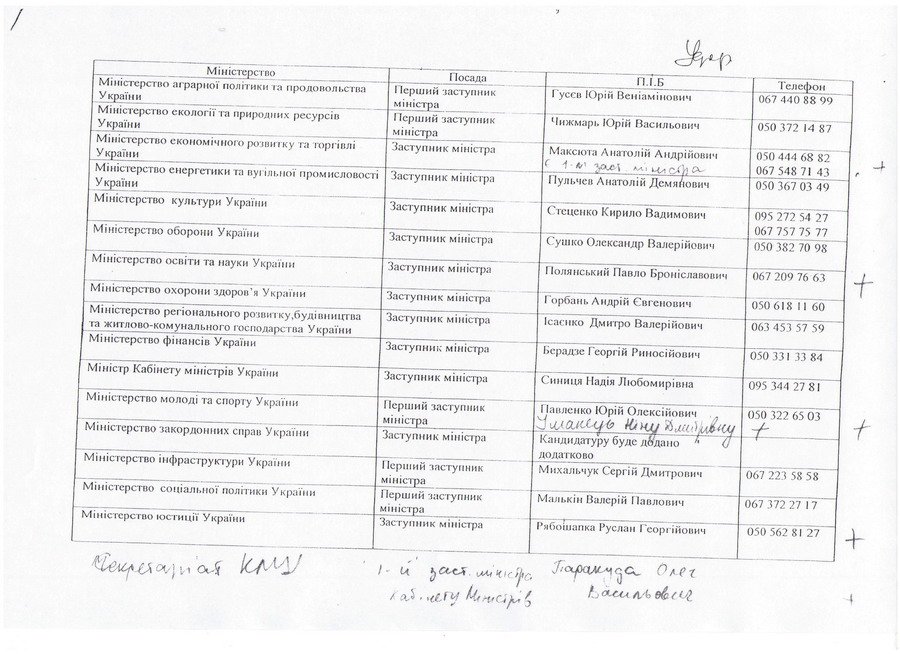 Удар
Міністерство Посада П.І.Б Телефон
Міністерство аграрної політики та продовольства Перший заступник Гусєв Юрій Веніамінович 067 440 88 99
України міністра
Міністерство екології та природних ресурсів Перший заступник Чижмарь Юрій Васильович 050 372 14 87
України міністра
Міністерство економічного розвитку та торгівлі Заступник міністра Максюта Анатолій Андрійович 050 444 68 82
України є 1-м заст. міністра 067 548 71 43 +
Міністерство енергетики та вугільної промисловості Заступник міністра Пульчев Анатолій Демянович 050 367 03 49
України
Міністерство культури України Заступник міністра Стеценко Кирило Вадимович 095 272 54 27
067 757 75 77
Міністерство оборони України Заступник міністра Сушко Олександр Валерійович 050 382 70 98
Міністерство освіти та науки України Заступник міністра Полянський Павло Броніславович 067 209 76 63 +
Міністерство охорони здоров’я України Заступник міністра Горбань Андрій Євгенович 050 618 11 60
Міністерство регіонального розвитку,будівництва Заступник міністра Ісаєнко Дмитро Валерійович 063 453 57 59
та житлово-комунального господарства України
Міністерство фінансів України Заступник міністра Берадзе Георгій Риносійович 050 331 33 84
Міністр Кабінету міністрів України Заступник міністра Синиця Надія Любомирівна 095 344 27 81
Міністерство молоді та спорту України Перший заступник Павленко Юрій Олексійович 050 322 65 03
міністра Уманець Ніну Дмитрівну + +
Міністерство закордонних справ України Заступник міністра Кандидатуру буде додано
додатково
Міністерство інфраструктури України Перший заступник Михальчук Сергій Дмитрович 067 223 58 58
міністра
Міністерство соціальної політики України Перший заступник Малькін Валерій Павлович 067 372 27 17
міністра
Міністерство юстиції України Заступник міністра Рябошапка Руслан Георгійович 050 562 81 27 +
Секретаріат КМУ 1-й заст. міністра Паракуда Олег
Кабінету Міністрів Васильович +